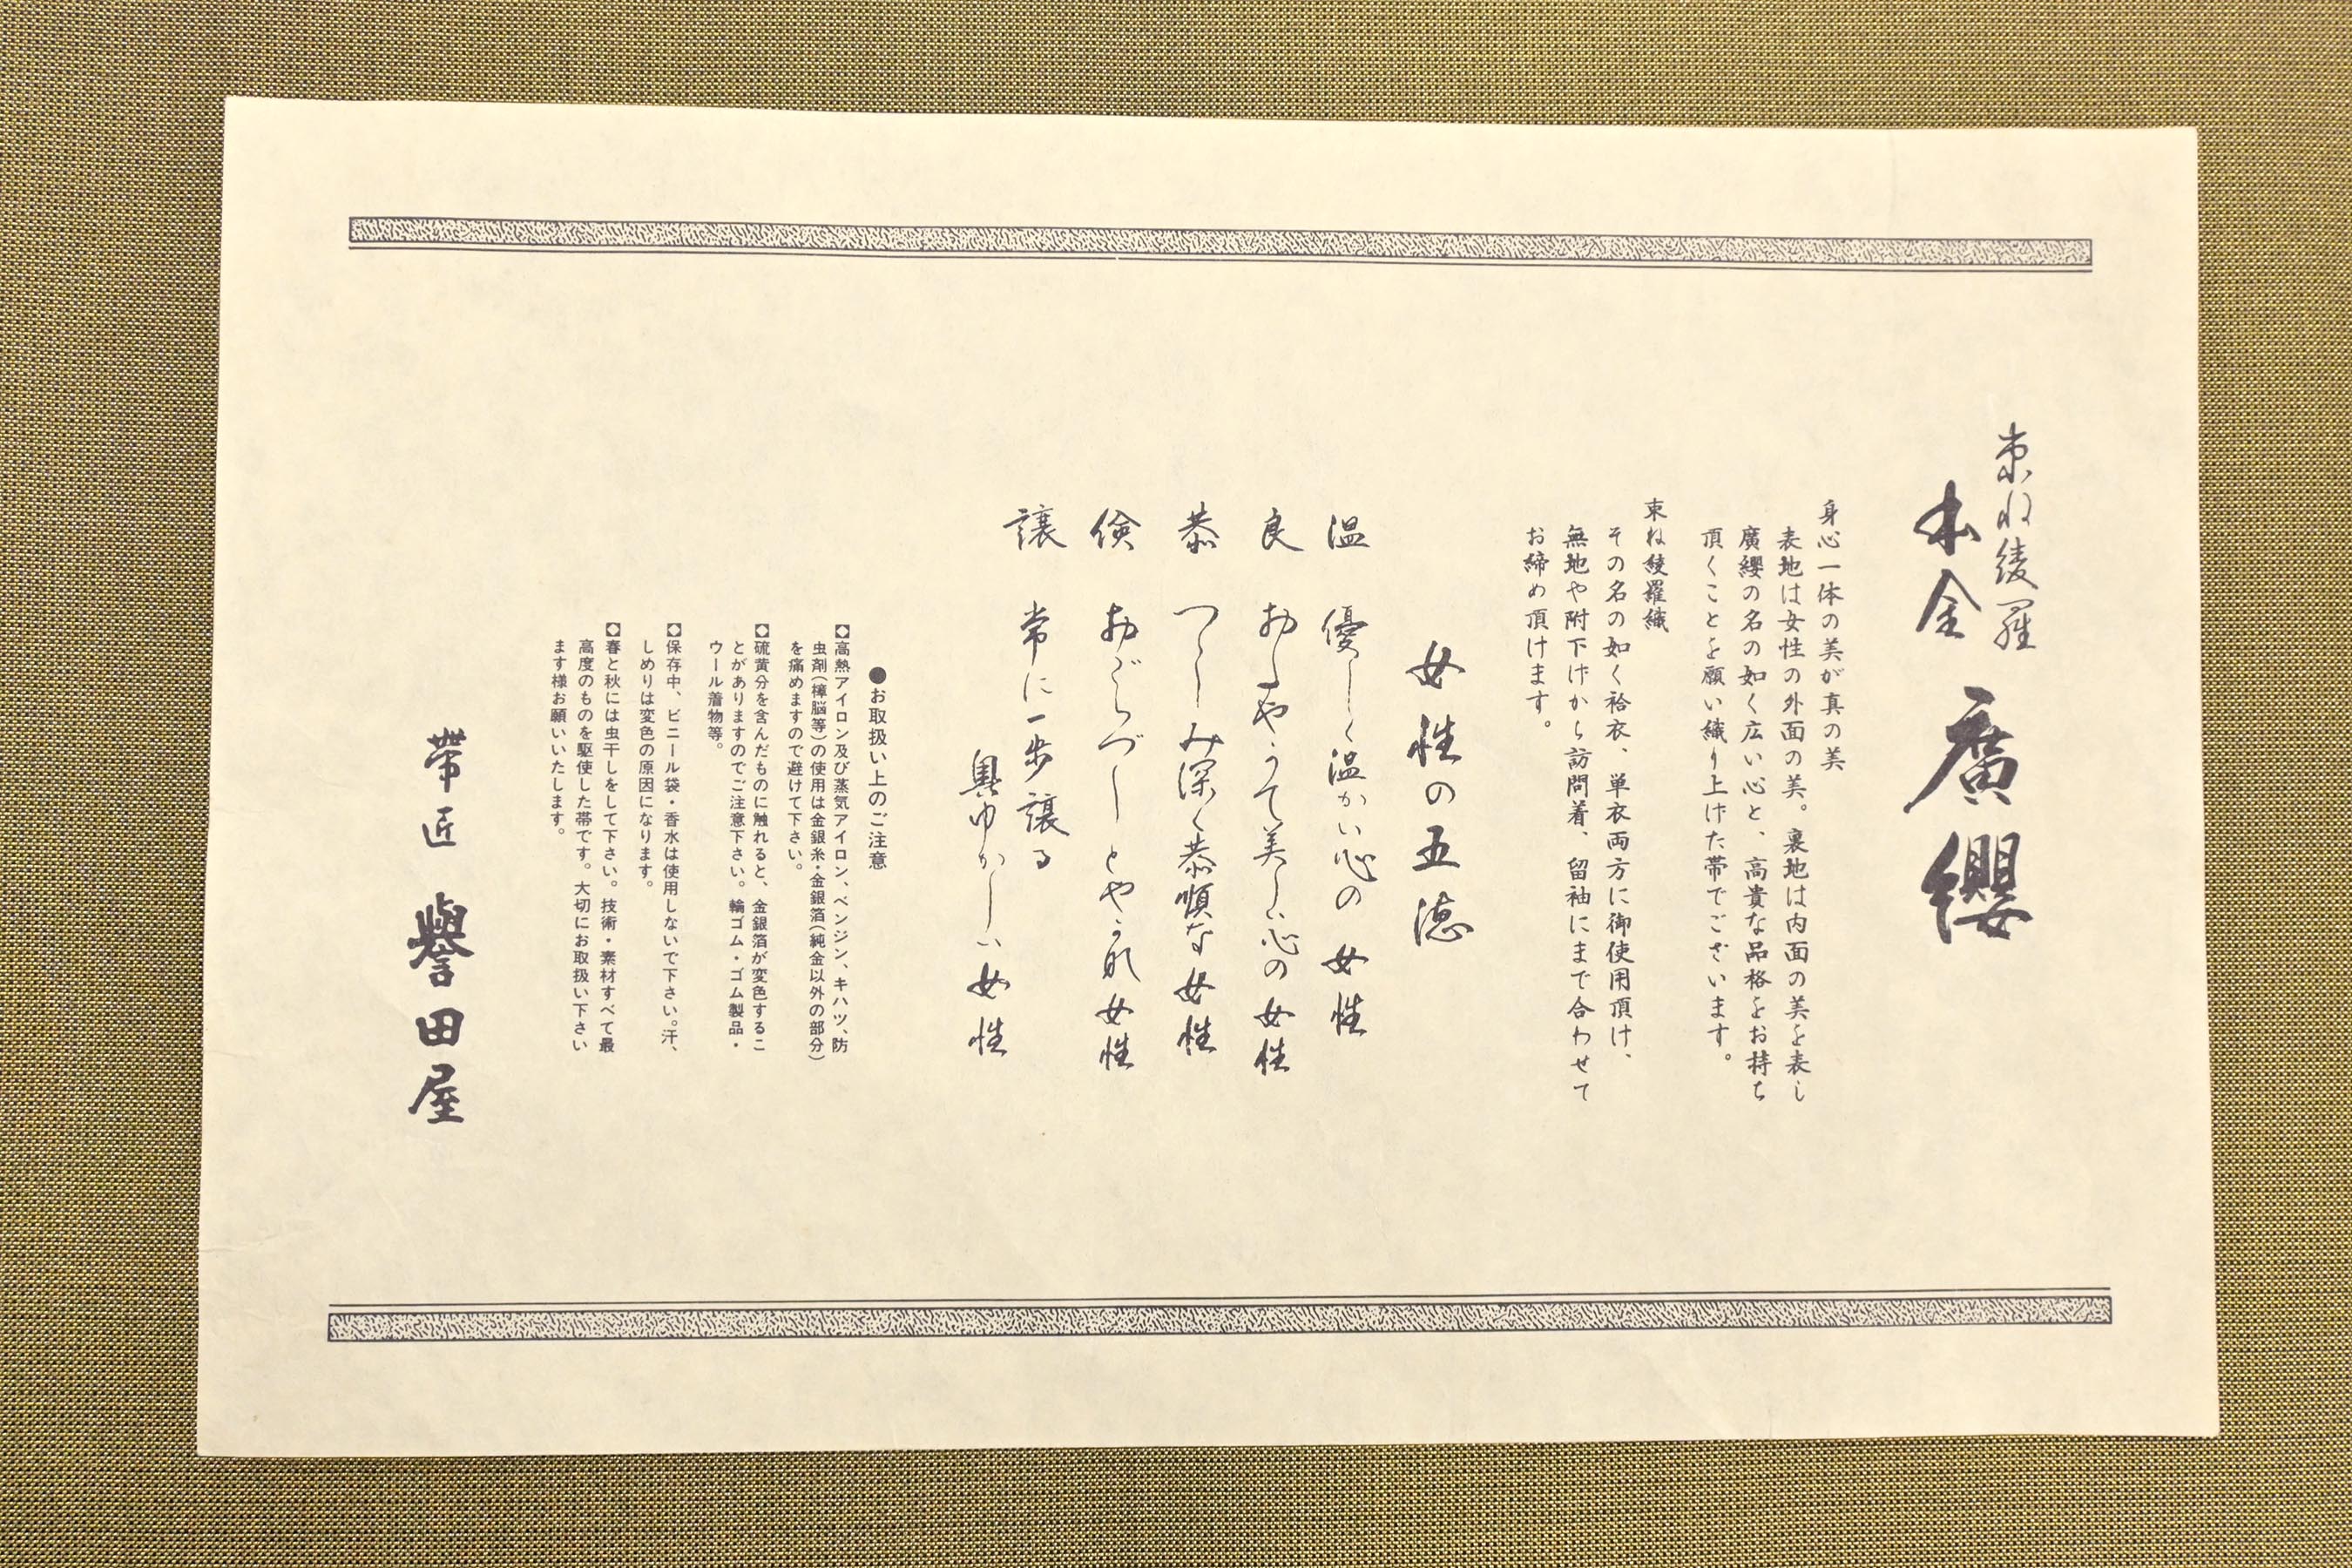 束ね綾羅
本金 廣纓
身心一体の美が真の美
表地は女性の外面の美。裏地は内面の美を表し
廣纓の名の如く広い心と、高貴な品格をお持ち
頂くことを願い織り上げた帯でございます。
束ね綾羅織
その名の如く袷衣、単衣両方に御使用頂け、
無地や附下げから訪問着、留袖にまで合わせて
お締め頂けます。
女性の五徳
温 優しく温かい心の女性
良 おしやうて美しい心の女性
恭 つゝしみ深く恭順な女性
倹 女性
譲 常に一歩譲る
奥ゆかしい女性
●お取扱い上のご注意
◆高熱アイロン及び蒸気アイロン、ベンジン、キハツ、防
虫剤(樟脳等)の使用は金銀糸・金銀箔(純金以外の部分)
を痛めますので避けて下さい。
◆硫黄分を含んだものに触れると、金銀箔が変色するこ
とがありますのでご注意下さい。輪ゴム・ゴム製品・
ウール着物等。
◆保存中、ビニール袋・香水は使用しないで下さい。汗、
しめりは変色の原因になります。
◆春と秋には虫干しをして下さい。技術・素材すべて最
高度のものを駆使した帯です。大切にお取扱い下さい
ます様お願いいたします。
帯匠 譽田屋